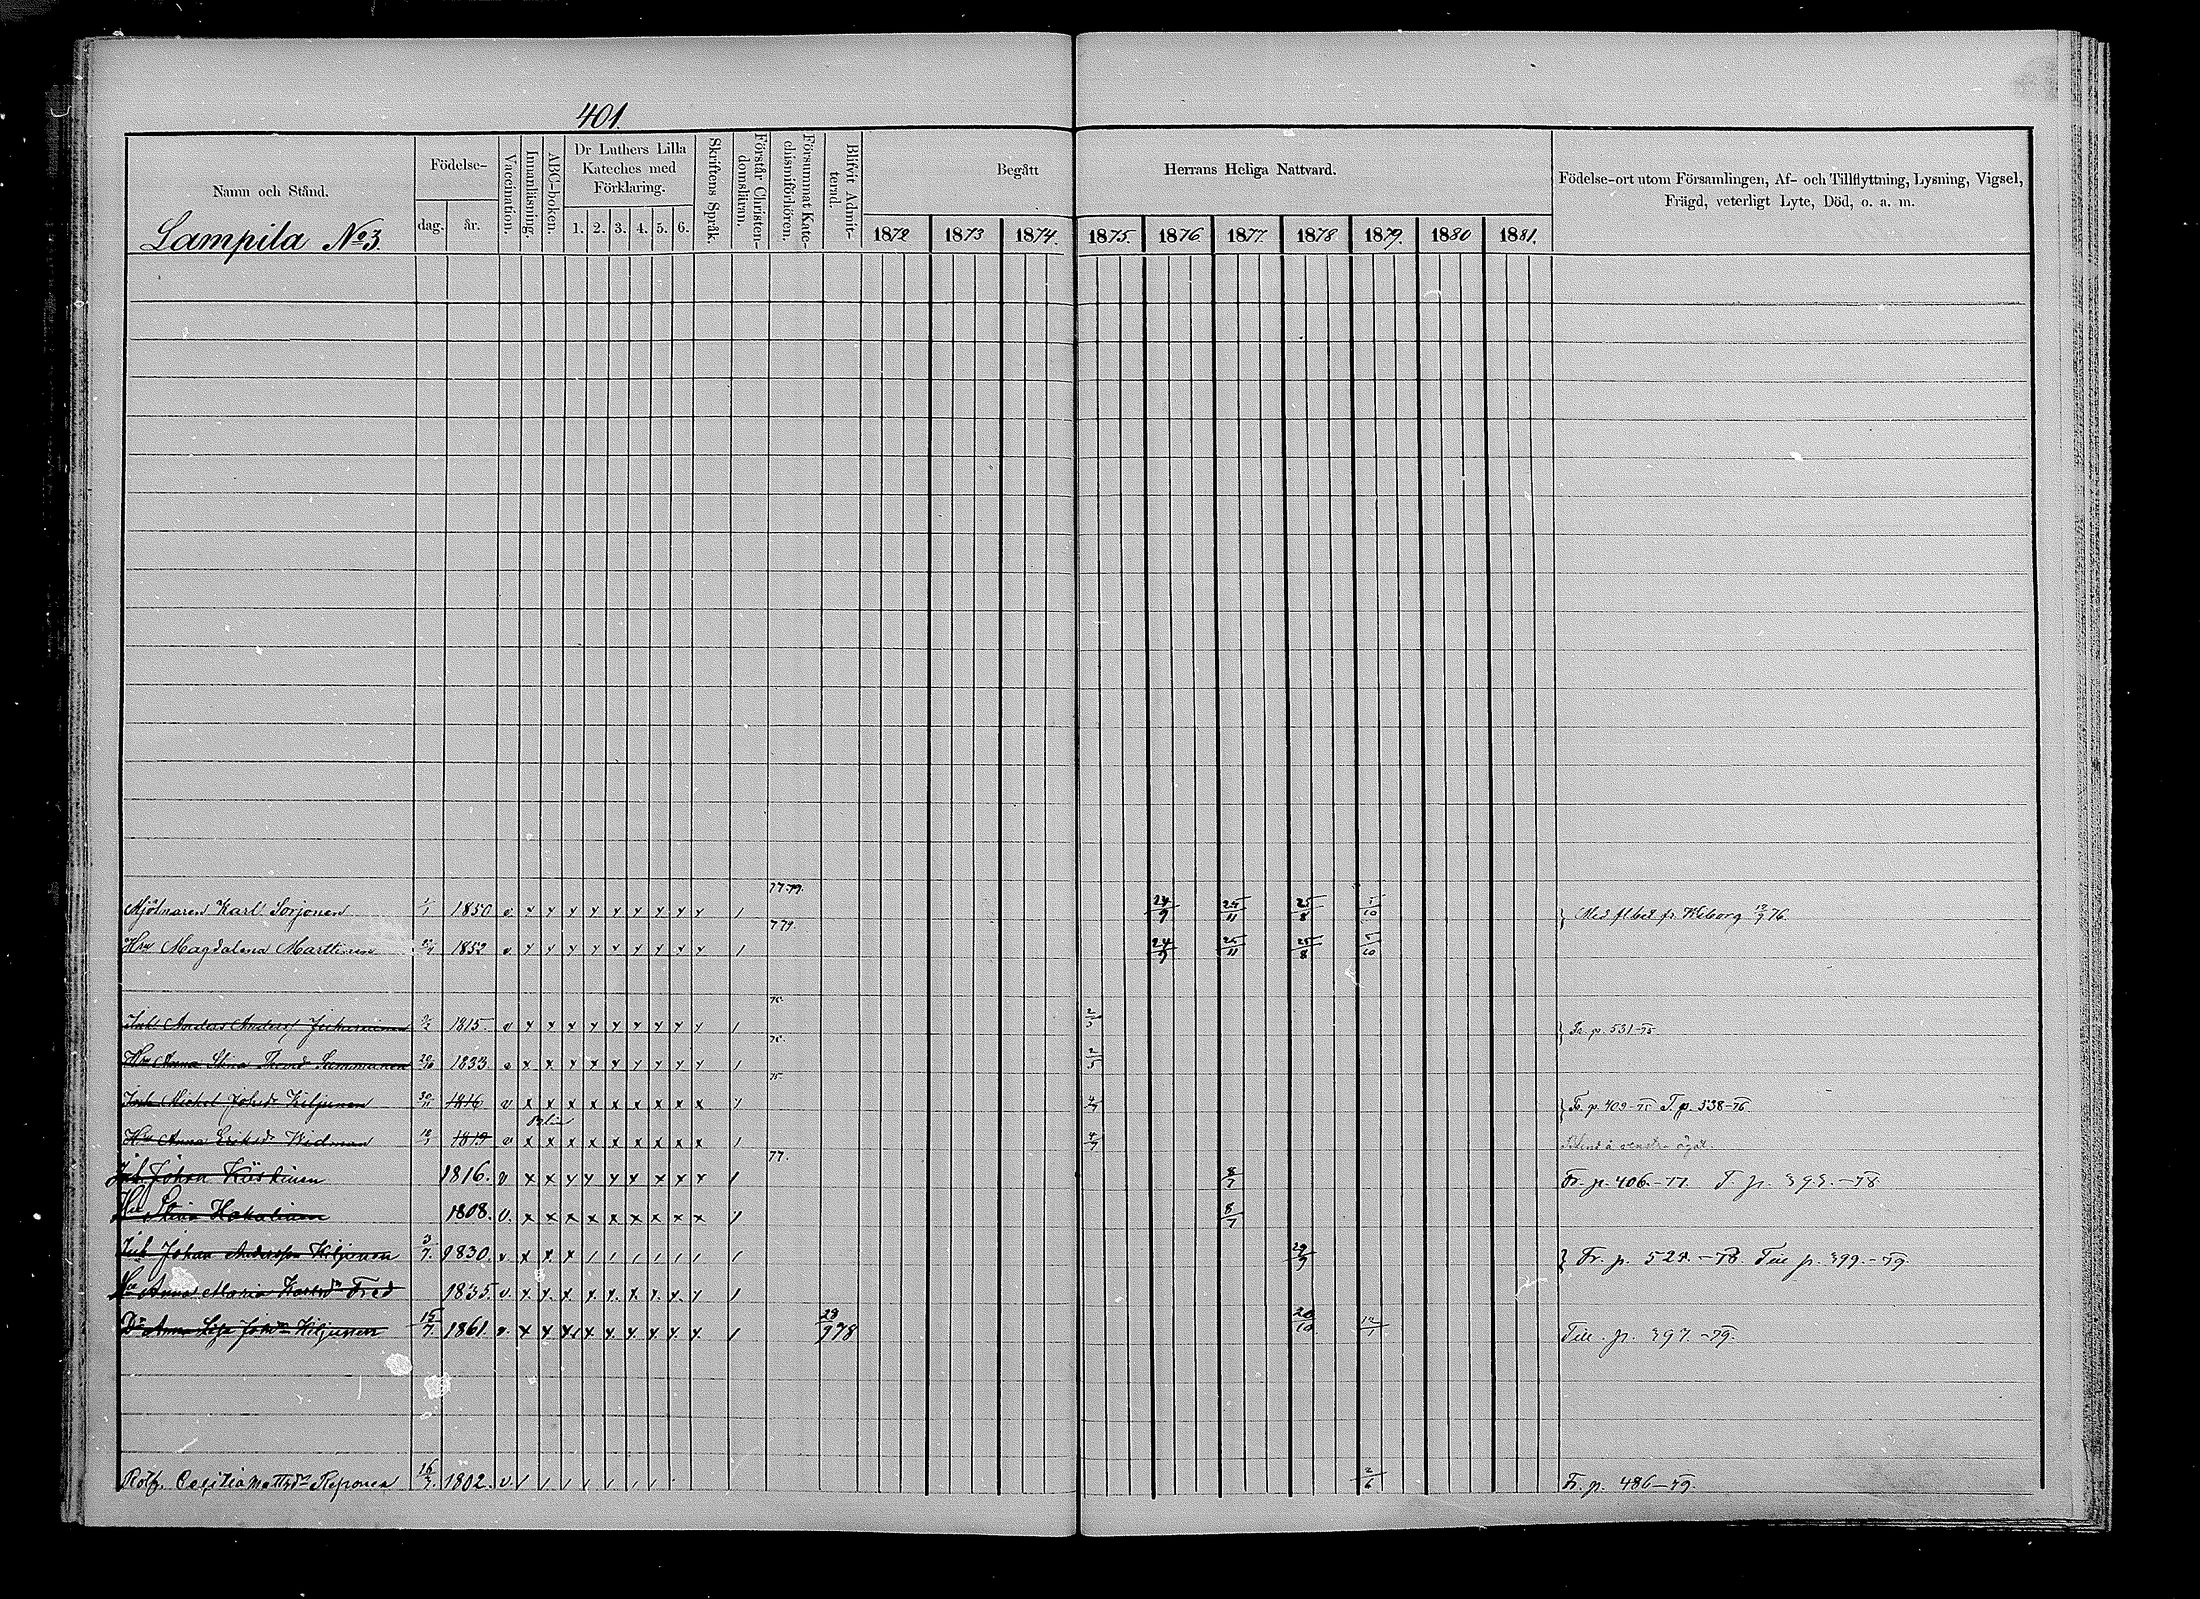 401.
Namn och Stånd.
Födelse-
dag.
år.
Vaccination.
Innanläsning.
ABC-boken.
Dr Luthers Lilla
Kateches med
Förklaring.
1. 2. 3. 4. 5. 6.
Skriftens Språk.
Förstår Christen-
domsläran.
Försummat Kate-
chismiförhören.
Blifvit Admit-
terad.
Begått Herrans Heliga Nattvard.
1872 1873 1874. 1875. 1876. 1877. 1878 1879. 1880 1881.
Födelse-ort utom Församlingen, Af- och Tillflyttning, Lysning, Vigsel,
Frägd, veterligt Lyte, Död, o. a. m.
Lampila No 3
77. 79.
Mjölnaren Karl Sorjonen 1/1 1850 v x x x x x x x x x / 24/9 25/11 25/8 5/10 Med flbet fr. Wiborg 12/9 76.
779.
Hru Magdalena Marttinen 1852 v x x x x x x x x x / 24/9 25/11 25/8 5/10
75.
Anders 1815. v x x x x x x x x x / 2/5 Fr. p. 531-75
75.
Hru Anna Stina 29/10 1833 v x x x x x x x x x / 2/5
75
Michel Johsdr Kiljunen 30/11 1816 v x x x x x x x x x / 4/7 Fr. p. 409-75 T. p. 538-76
Hru Anna Eriksdr Widman 1819 v x x x x x x x x x / 4/7 Blind å venstra ögat.
77.
Inh. Johan Köskinen 1816. v x x x x x x x x x / 8/7 Fr. p. 406.-77. T. p. 393.-78
Hu Stina Hakalinen 1808. v. x x x x x x x x x / 8/7
Inh Johan Andersson Kiljunen 3/7. 1830. v. x x x / / / / / / / 29/9 Fr. p. 524.-78. Till p. 399.-79.
Hu Anna Maria Karlsdr Fred 1835. v. x x x x x x x x x /
Dr Anna Lisa Johsdr Kiljunen 15/7. 1861. v. x x x x x x x x x / 29/9 78 20/10 12/1 Till. p. 397.-79.
Rotf. Cecilia Mattsdr Reponen 16/3. 1802. v. / / / / / / / 2/6 Fr. p. 486-79.